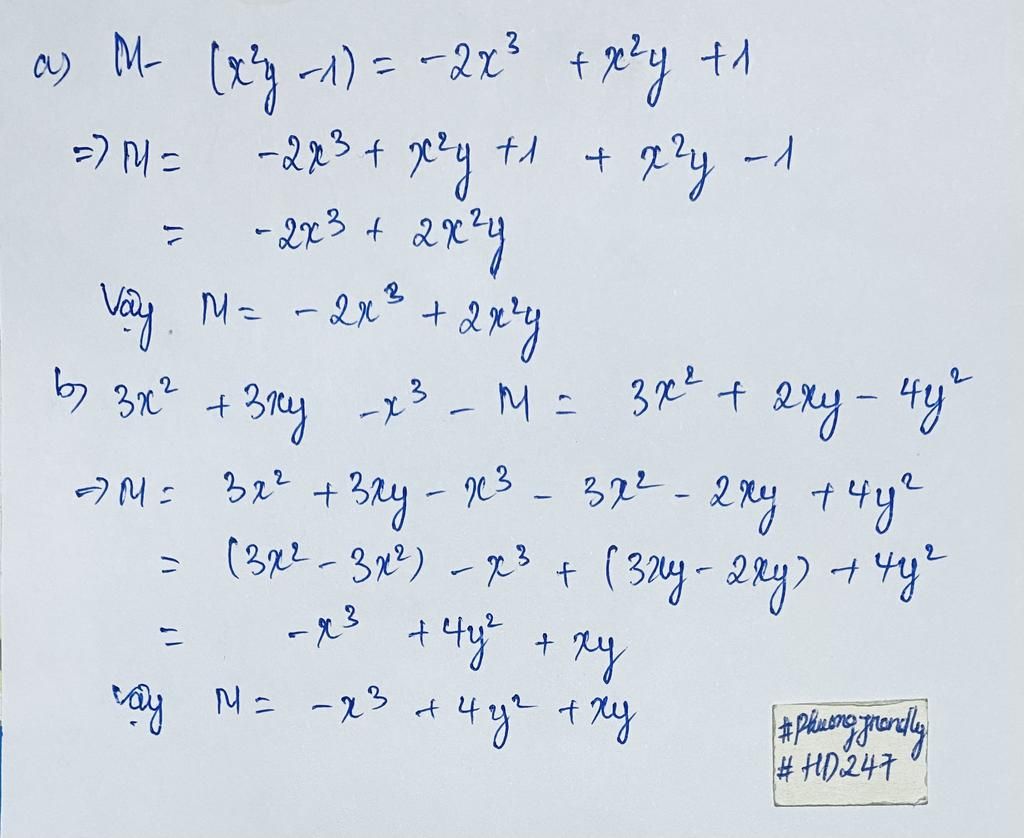 a) M - (x²y - 1) = -2x³ + x²y + 1
=> M = -2x³ + x²y + 1 + x²y - 1
= -2x³ + 2x²y
Vậy M = -2x³ + 2x²y
b) 3x² + 3xy - x³ - M = 3x² + 2xy - 4y²
=> M = 3x² + 3xy - x³ - 3x² - 2xy + 4y²
= (3x² - 3x²) - x³ + (3xy - 2xy) + 4y²
= -x³ + 4y² + xy
Vậy M = -x³ + 4y² + xy
# HD247